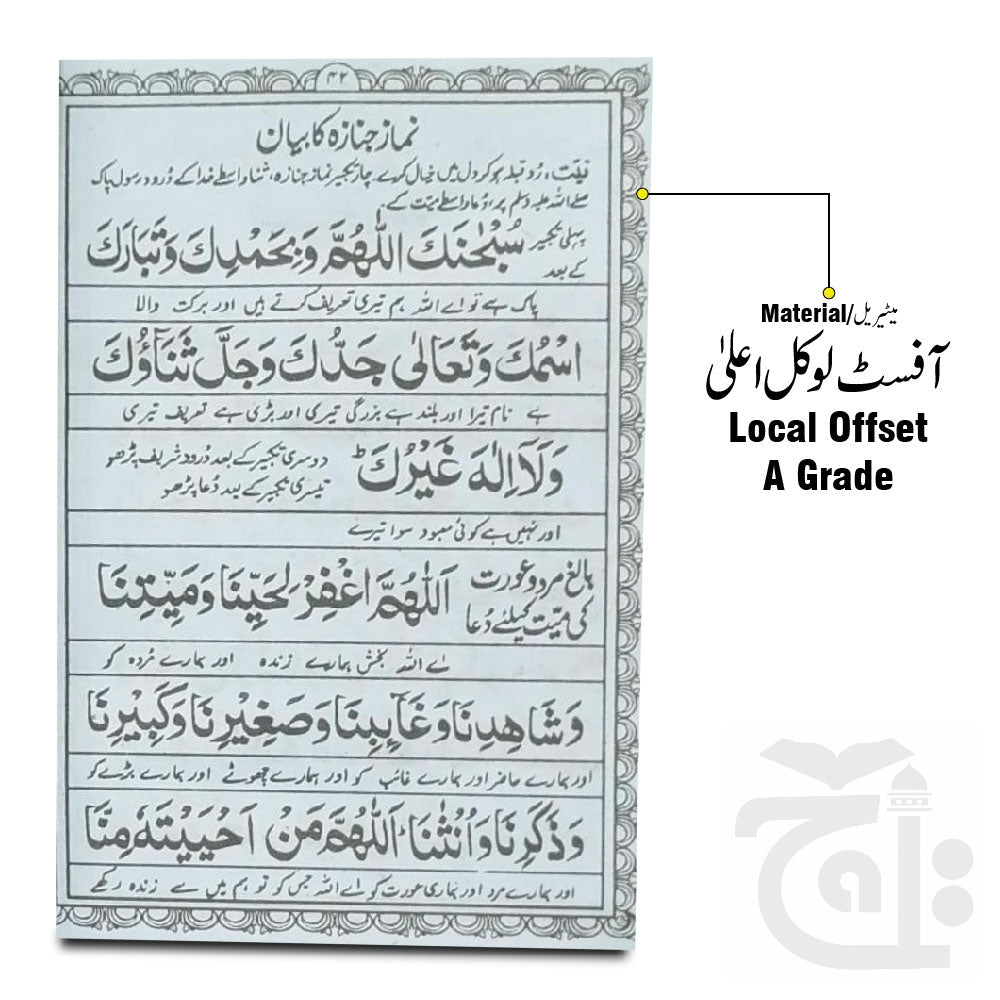 ۴۲
نماز جنازہ کا بیان
نیت، رُو قبلہ ہو کر دل میں خیال کرے چار تکبیر نماز جنازہ، ثنا واسطے خدا کے دُرود رسول پاک
صلے اللہ علیہ وسلم پر، دُعا واسطے میّت کے۔
پہلی تکبیر کے بعد سُبْحٰنَكَ اللّٰهُمَّ وَبِحَمْدِكَ وَتَبَارَكَ
پاک ہے تو اے اللہ ہم تیری تعریف کرتے ہیں اور برکت والا
اسْمُكَ وَتَعَالٰى جَدُّكَ وَجَلَّ ثَنَآؤُكَ
ہے نام تیرا اور بلند ہے بزرگی تیری اور بڑی ہے تعریف تیری
وَلَآ اِلٰهَ غَيْرُكَ ط دوسری تکبیر کے بعد دُرود شریف پڑھو
تیسری تکبیر کے بعد دُعا پڑھو
اور نہیں ہے کوئی معبود سوا تیرے
بالغ مرد و عورت کی میّت کیلئے دُعا اَللّٰهُمَّ اغْفِرْ لِحَيِّنَا وَمَيِّتِنَا
اے اللہ بخش ہمارے زندہ اور ہمارے مُردہ کو
وَشَاهِدِنَا وَغَآئِبِنَا وَصَغِيْرِنَا وَكَبِيْرِنَا
اور ہمارے حاضر اور ہمارے غائب کو اور ہمارے چھوٹے اور ہمارے بڑے کو
وَذَكَرِنَا وَاُنْثٰنَا اَللّٰهُمَّ مَنْ اَحْيَيْتَهٗ مِنَّا
اور ہمارے مرد اور ہماری عورت کو اے اللہ جس کو تو ہم میں سے زندہ رکھے
Material/میٹیریل
آفسٹ لوکل اعلیٰ
Local Offset
A Grade
تاج